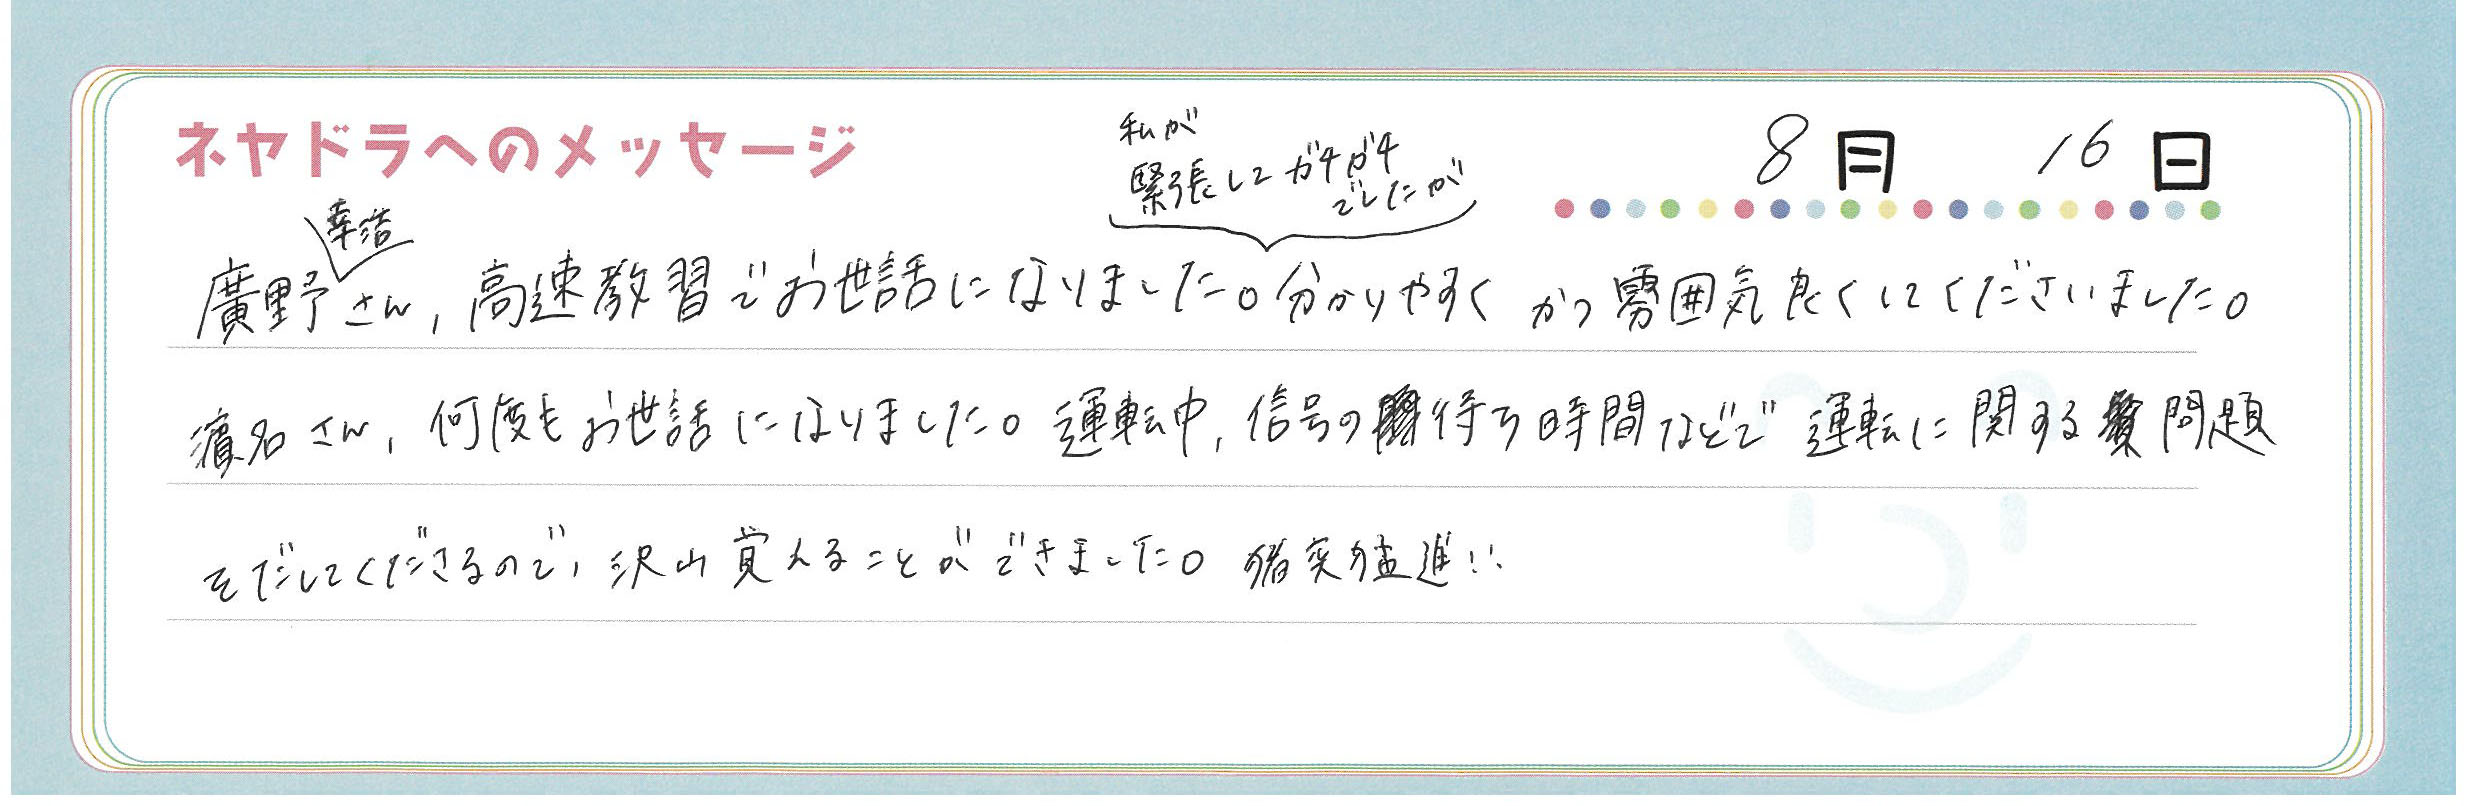 ネヤドラへのメッセージ
8月 16日
私が
緊張してガチガチ
でしたが
幸浩
廣野さん,高速教習でお世話になりました。分かりやすく かつ雰囲気良くしてくださいました。
濱名さん,何度もお世話になりました。運転中,信号の待ち時間などで運転に関する問題
をだしてくださるので,沢山覚えることができました。猪突猛進!!